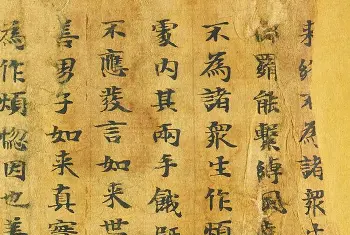 来終不為諸衆生
羂能繫縛風
不為諸衆生作煩
處內其兩手餓
不應發言如来世
善男子如来真實
為作煩惱因也善